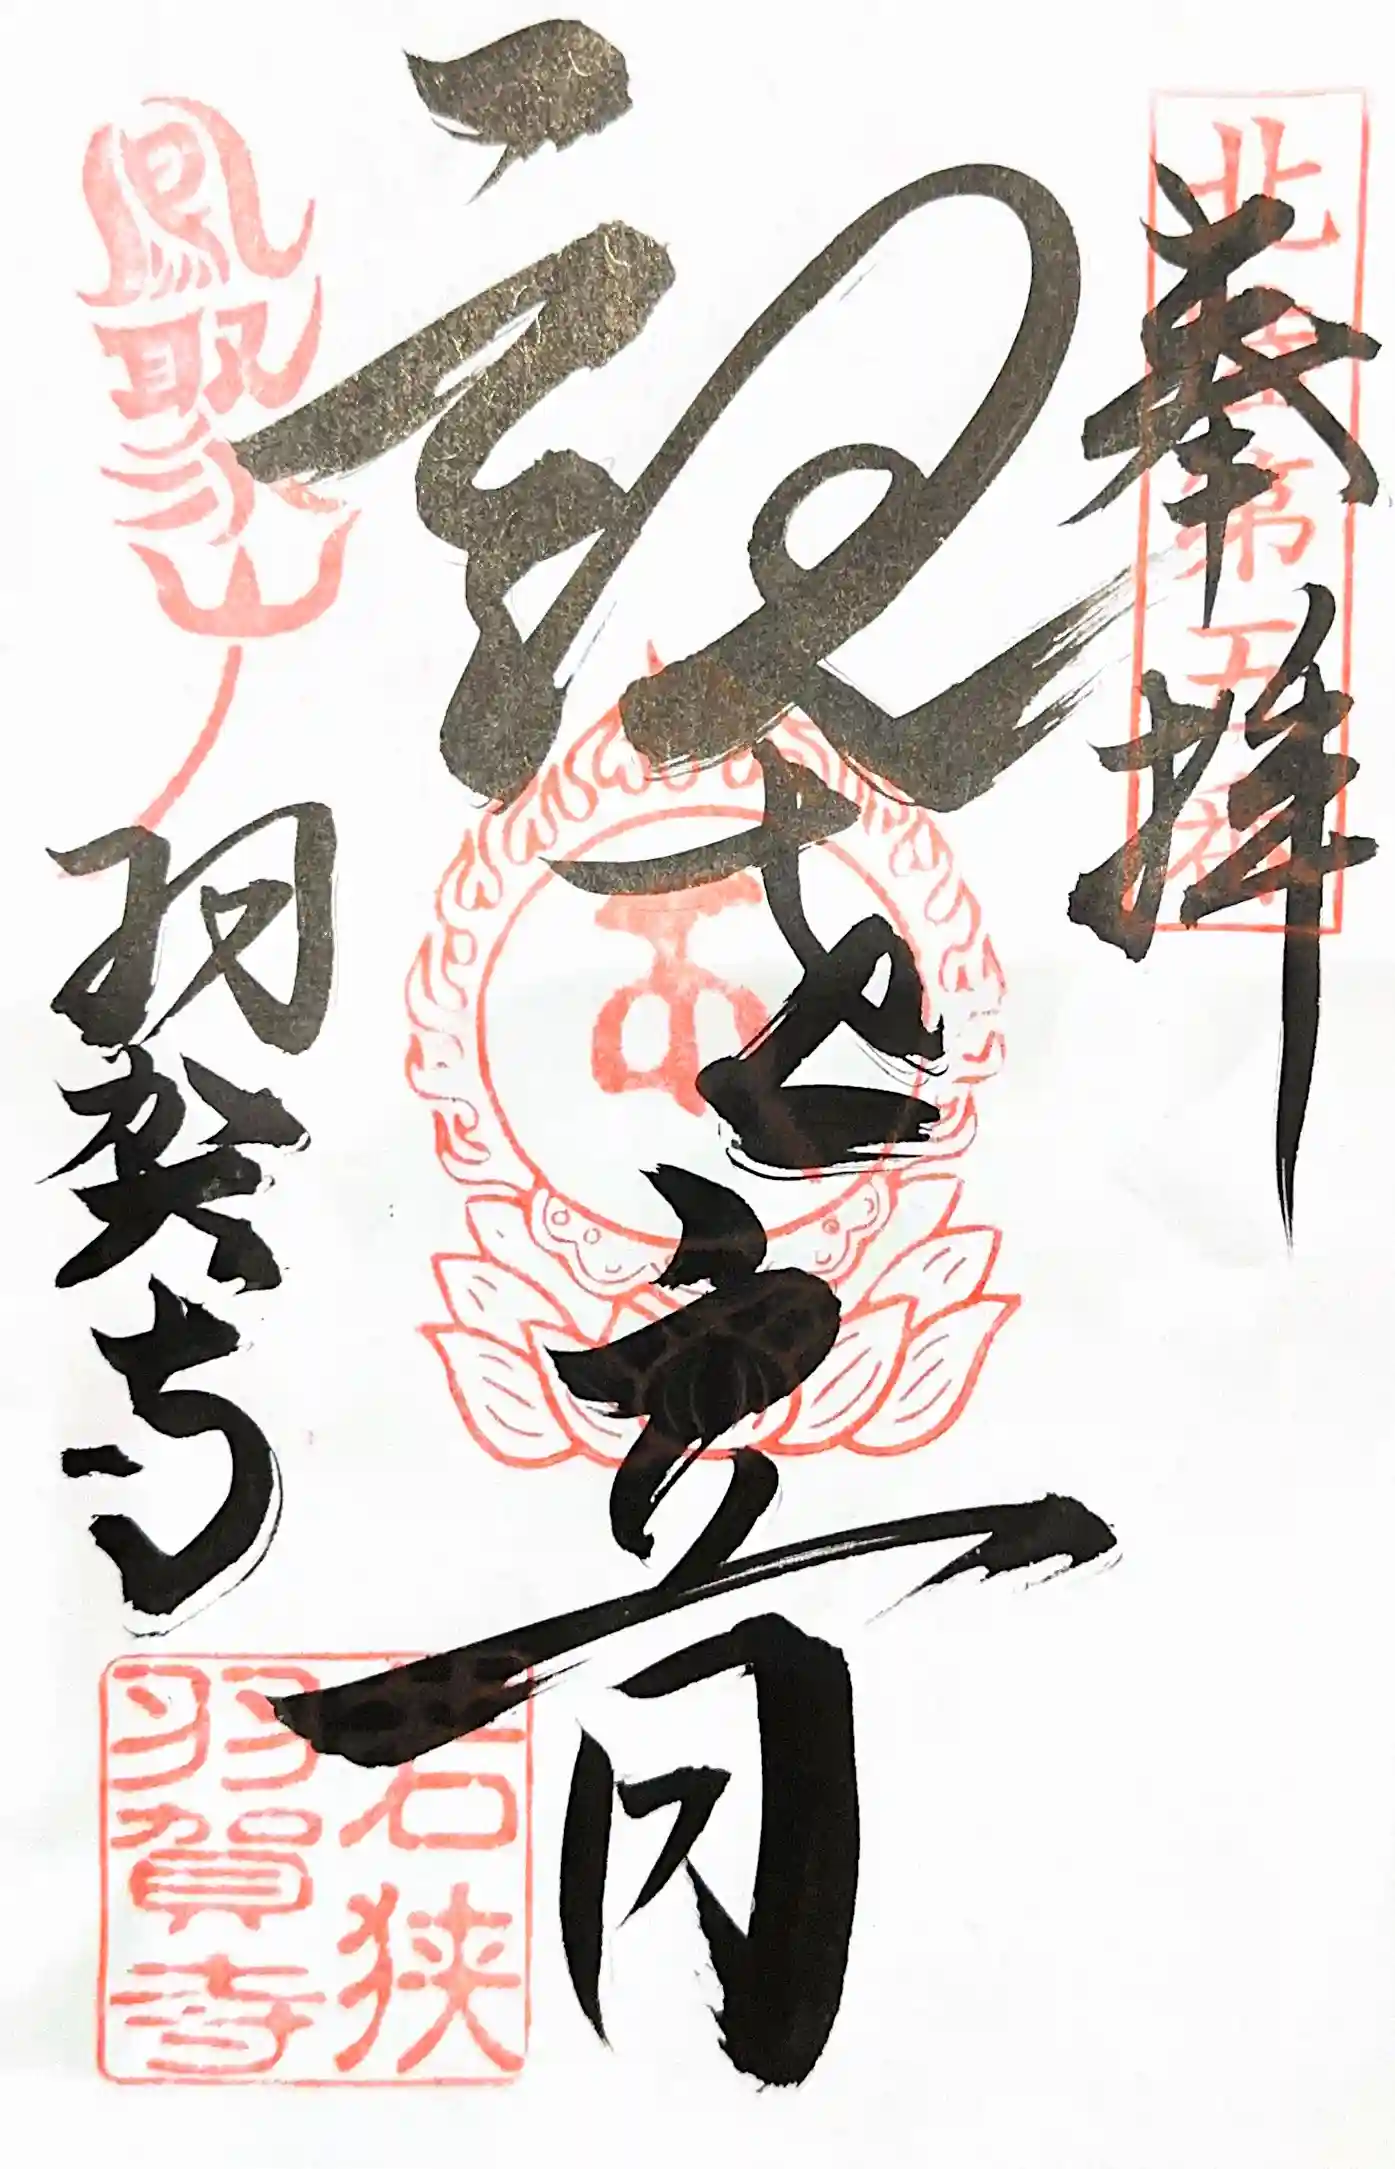 奉拝
北陸第五
観世音
鳳聚山
羽賀寺
若狭
羽賀寺